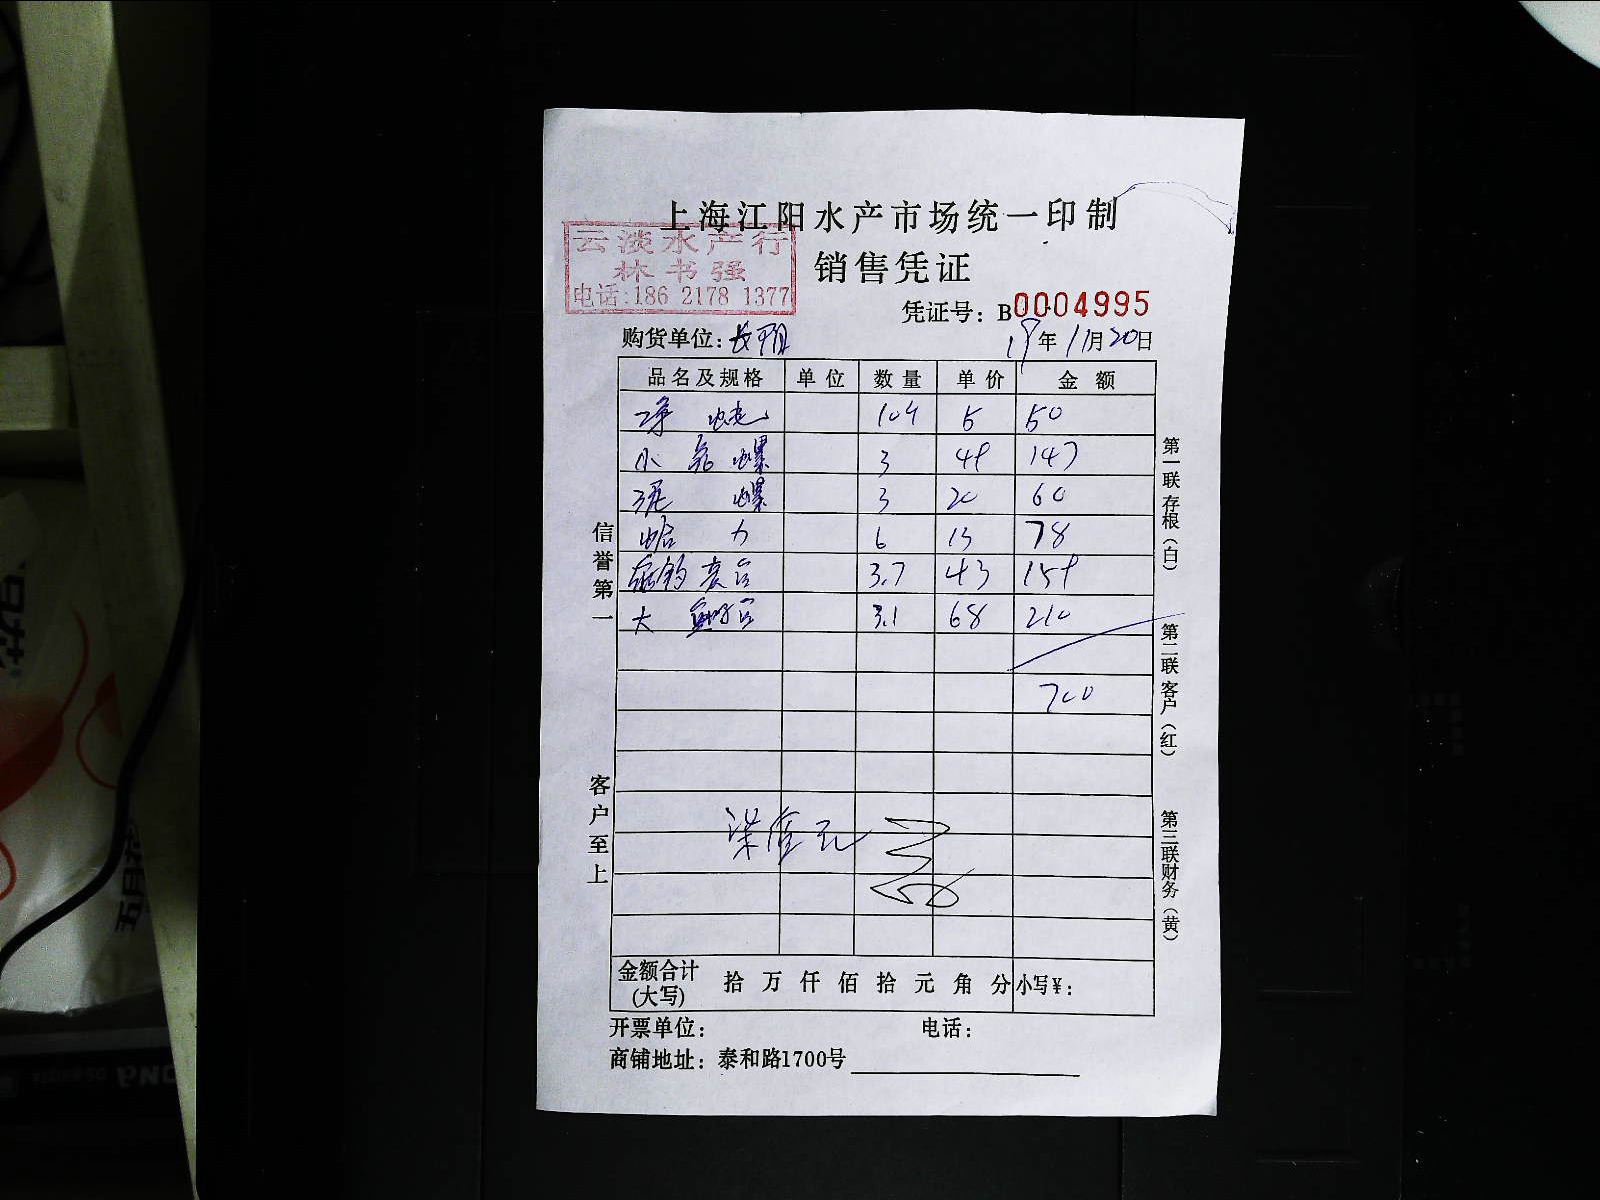 上海江阳水产市场统一印制
云淡水产行
林书强
电话:186 2178 1377
销售凭证
凭证号：B0004995
购货单位：长阳
19年11月20日
品名及规格 单位 数量 单价 金额
净 5 50
小 螺 3 49 147
泥 螺 3 20 60
蛤 6 13 78
3.7 43 159
大 3.1 68 210
700
金额合计(大写) 拾 万 仟 佰 拾 元 角 分 小写¥：
开票单位： 电话：
商铺地址：泰和路1700号
信誉第一
客户至上
第一联存根（白）
第二联客户（红）
第三联财务（黄）